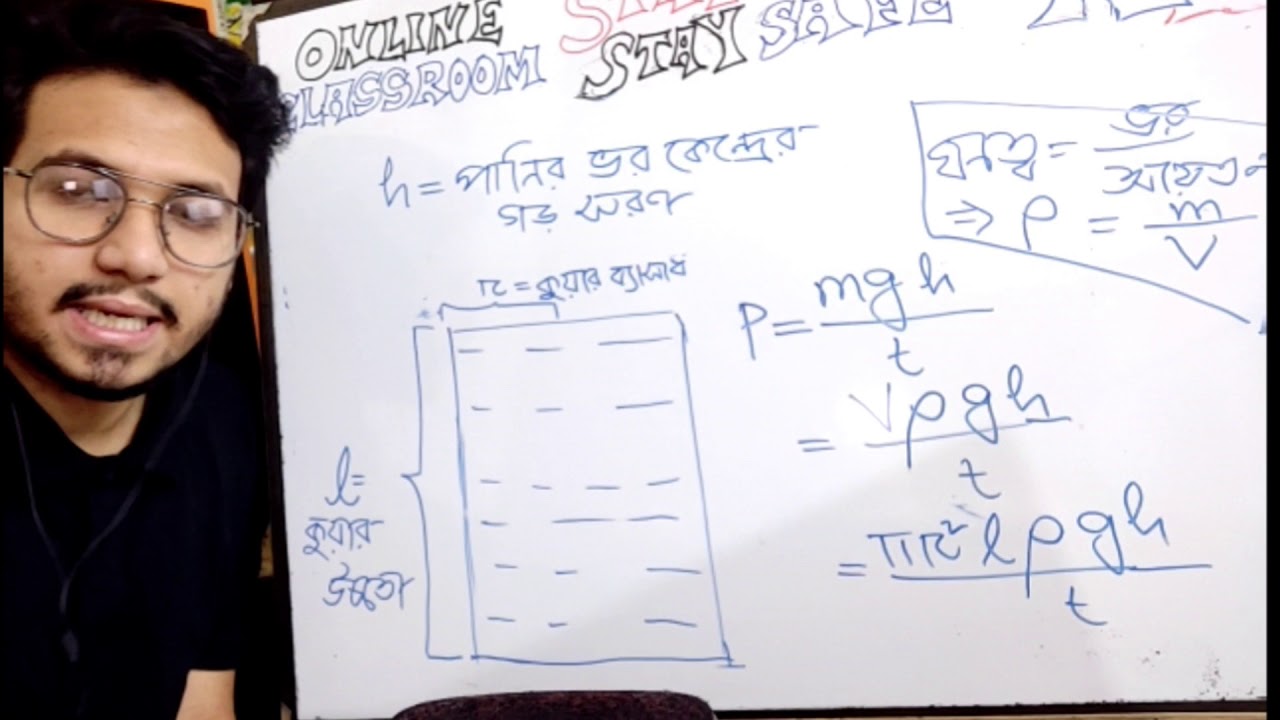 ONLINE
CLASSROOM
STAY
h = পানির ভর কেন্দ্রের
গড় সরণ
ঘনত্ব = ভর
আয়তন
⇒ ρ = m
V
r = কুয়ার ব্যাসার্ধ
l =
কুয়ার
উচ্চতা
P = mgh
t
= Vρgh
t
= πr²lρgh
t